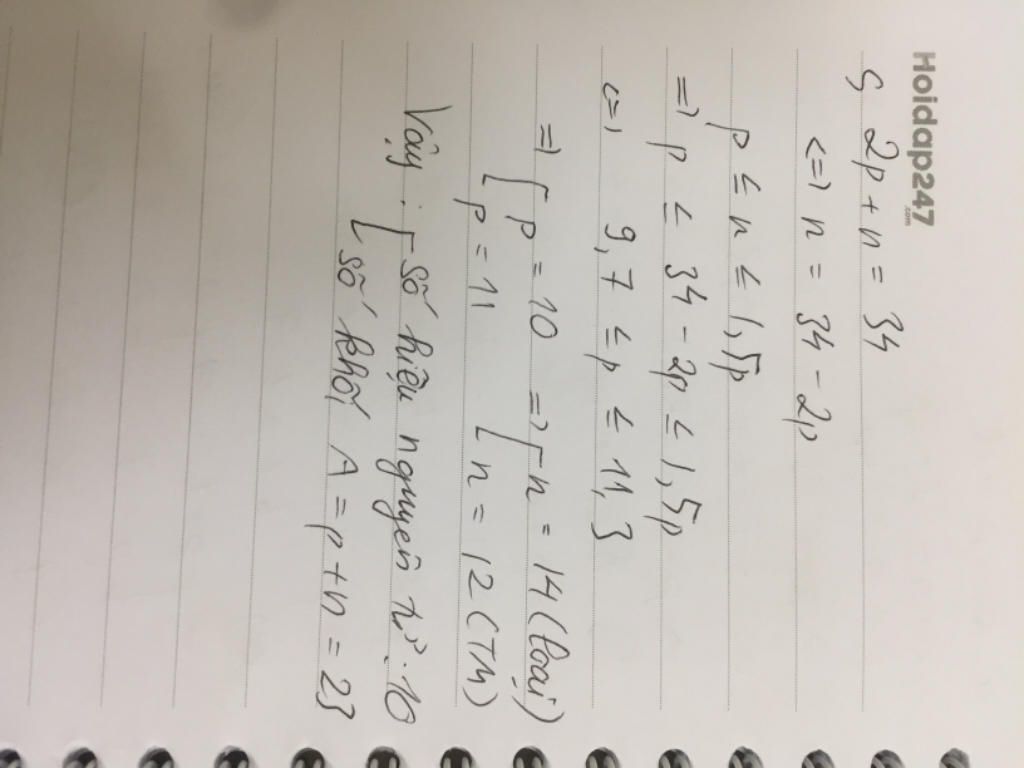 Hoidap247
.com
S 2p + n = 34
<=> n = 34 - 2p
p ≤ n ≤ 1,5p
=> p ≤ 34 - 2p ≤ 1,5p
<=> 9,7 ≤ p ≤ 11,3
=> [ p = 10 => [ n = 14 (loại)
p = 11 n = 12 (TM)
Vậy : [ số hiệu nguyên tử : 10
số khối A = p + n = 23